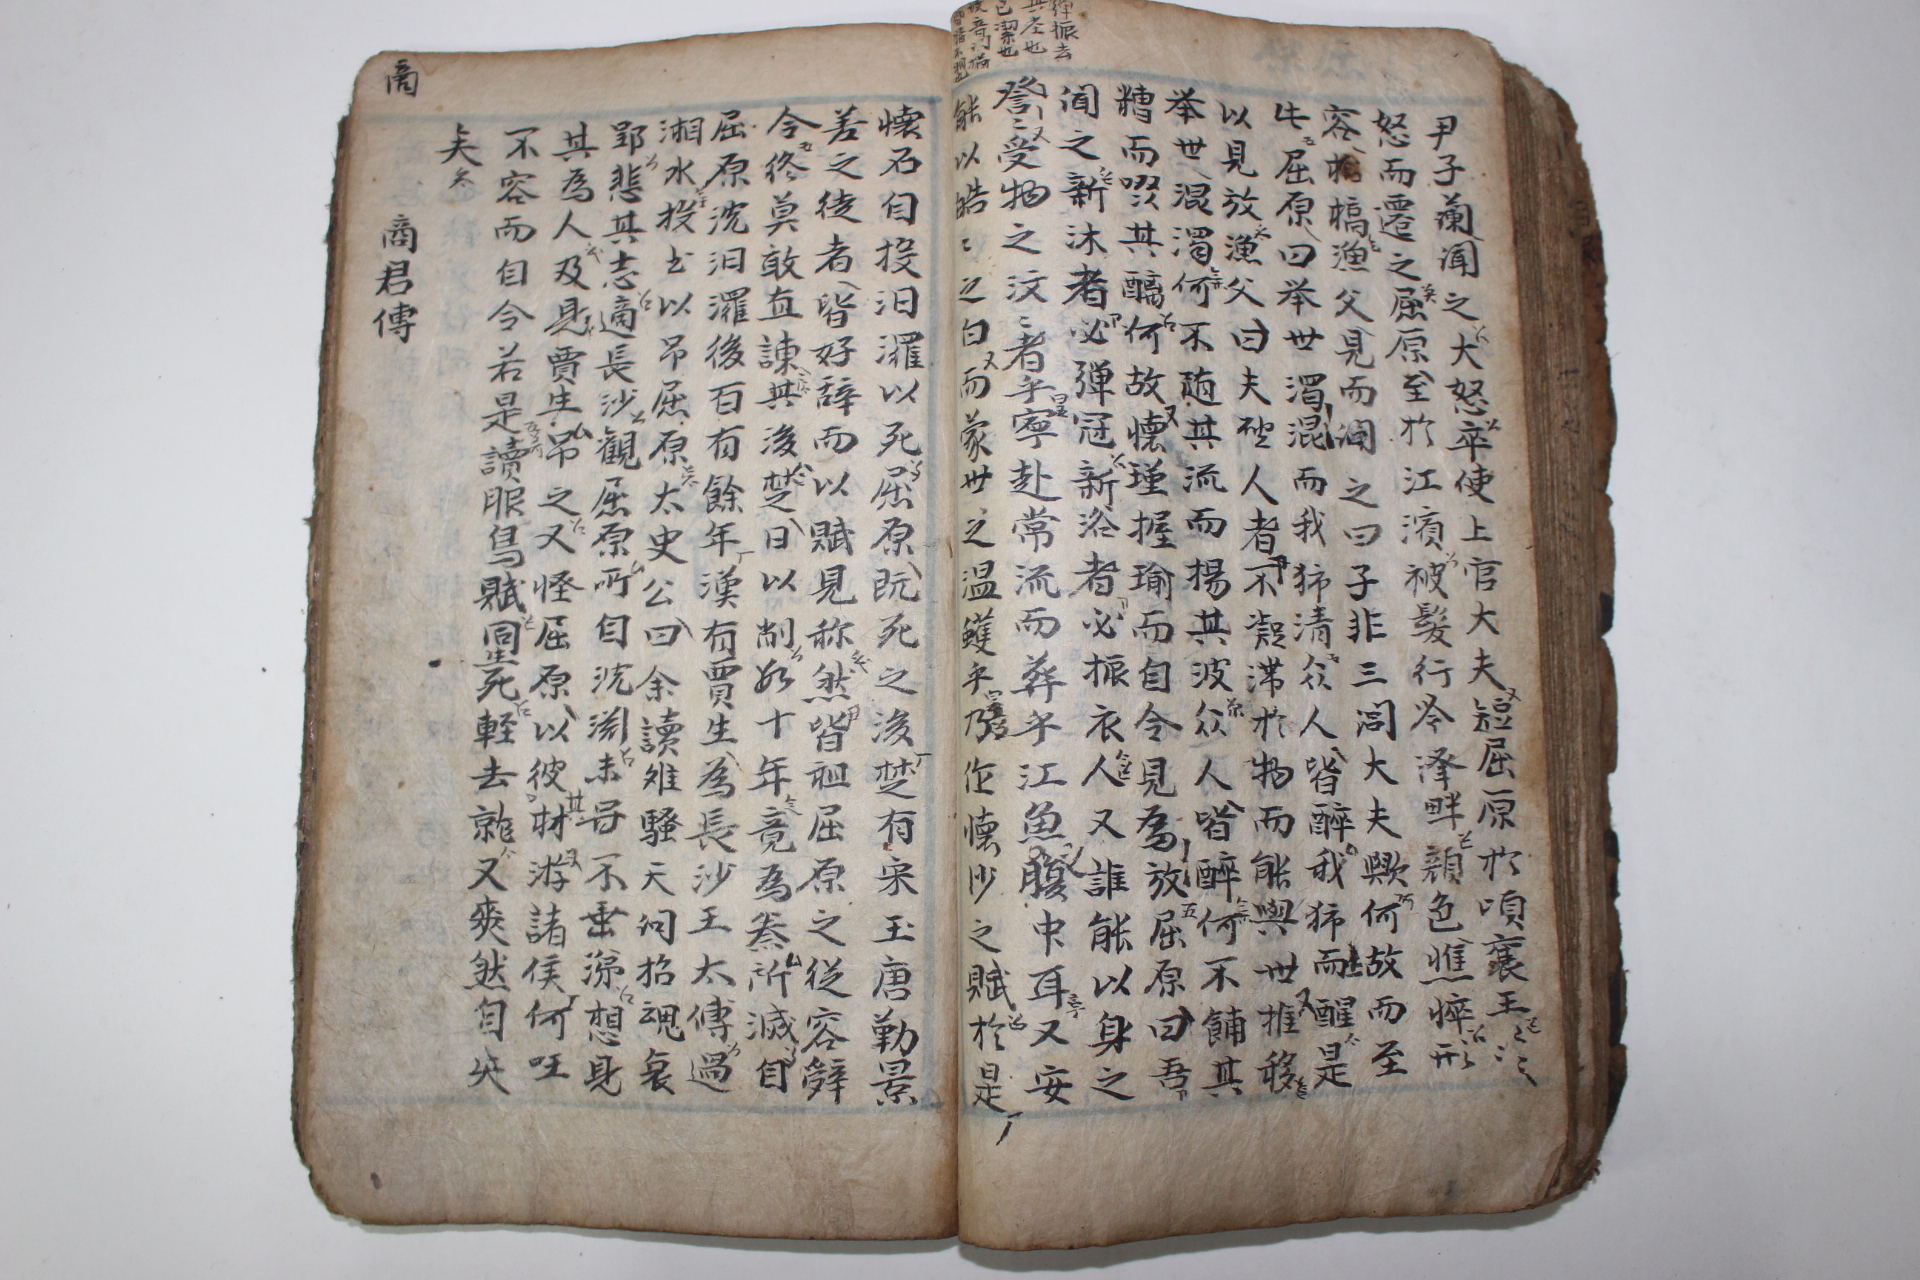 尹子蘭闻之大怒卒使上官大夫短屈原於頃襄王王
怒而遷之屈原至於江濱被髮行吟澤畔顔色憔悴形
容枯槁漁父見而问之曰子非三闾大夫歟何故而至
此屈原曰举世溷混而我独清众人皆醉我独而醒是
以見放漁父曰夫圣人者不凝滞於物而能與世推移
举世混濁何不随其流而揚其波众人皆醉何不餔其
糟而啜其醨何故懷瑾握瑜而自令見為放屈原曰吾
闻之新沐者必弹冠新浴者必振衣人又誰能以身之
詧詧受物之汶汶者乎寧赴常流而葬乎江魚腹中耳又安
能以皓皓之白而蒙世之温蠖乎乃作懷沙之賦於是
懷石自投汨灘以死屈原既死之後楚有宋玉唐勒景
差之徒者皆好辞而以賦見称然皆祖屈原之從容辤
令終莫敢直諫其後楚日以削数十年竟為秦所滅自
屈原沈汨灘後百有餘年漢有賈生為長沙王太傅過
湘水投书以吊屈原太史公曰余讀难騷天问招魂哀
郢悲其志適長沙觀屈原所自沈渊未甞不垂涕想見
其為人及見賈生吊之又怪屈原以彼材游諸侯何國
不容而自令若是讀服鳥賦同生死輕去就又爽然自失
矣
商君傳
商